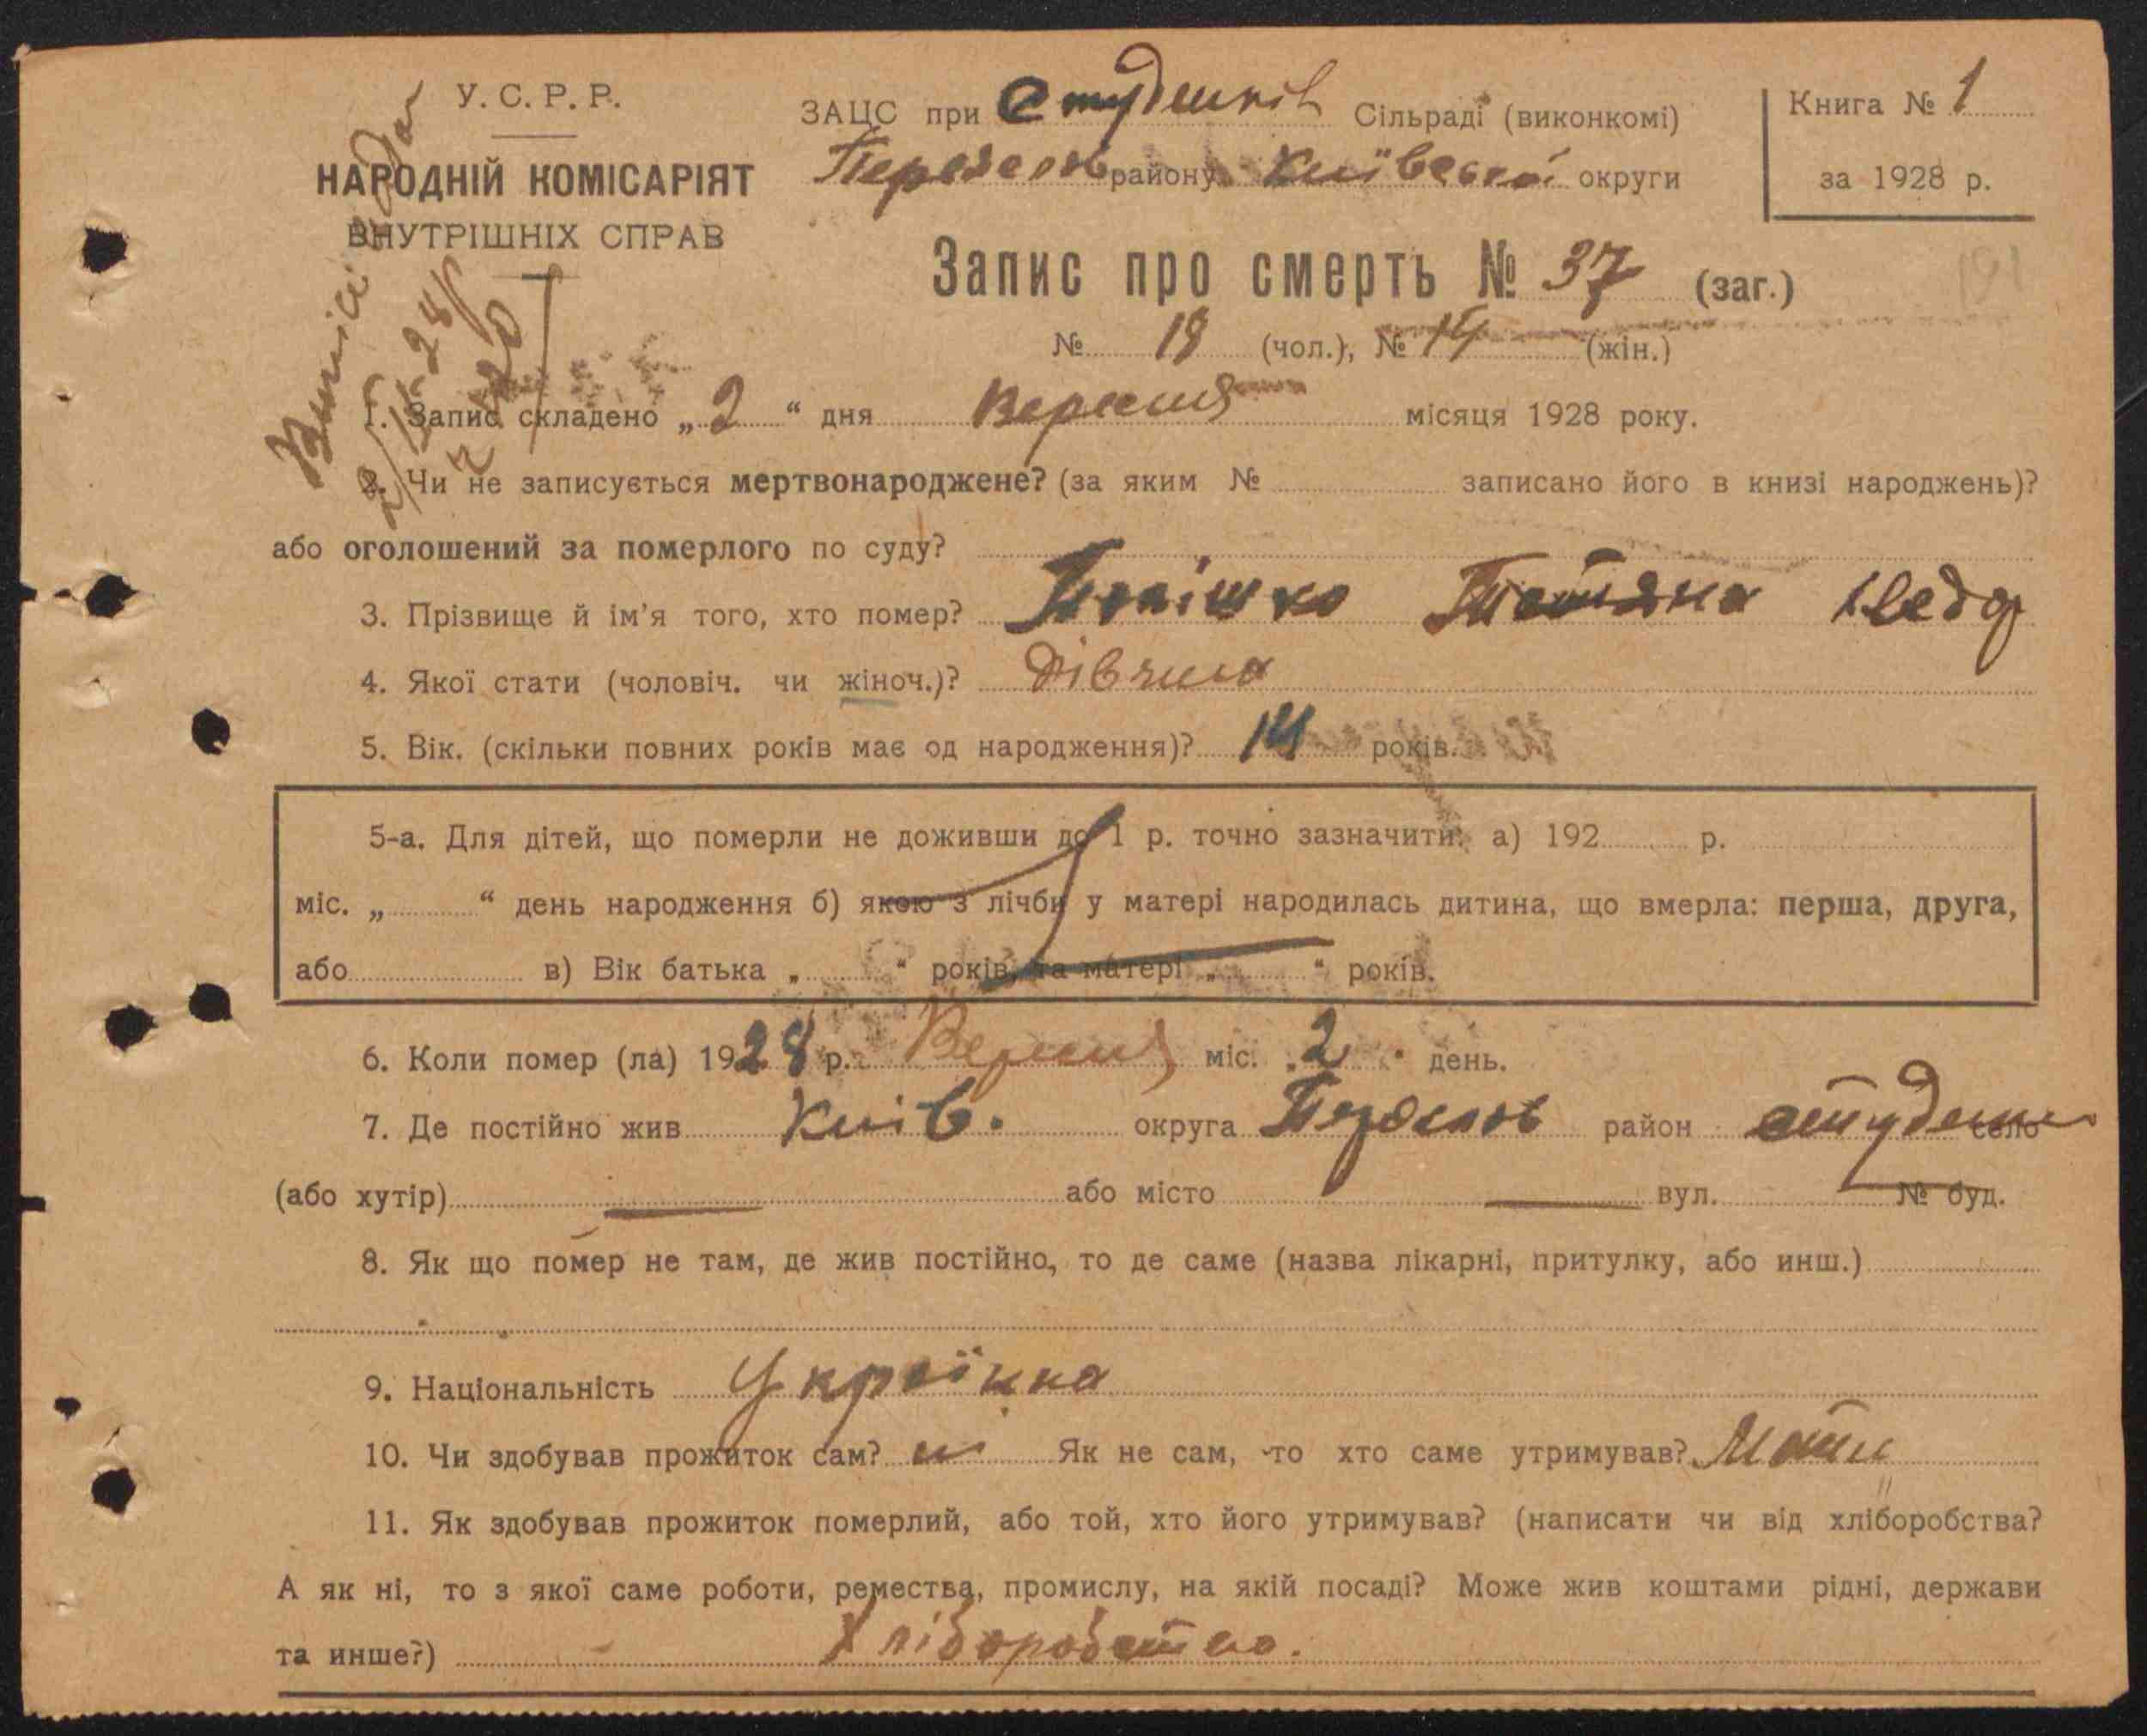 У. С. Р. Р.
НАРОДНІЙ КОМІСАРІЯТ
ВНУТРІШНІХ СПРАВ
ЗАЦС при Студенків Сільраді (виконкомі)
району Київської округи
Книга № 1
за 1928 р.
Запис про смерть № 37 (заг.)
191
№ 18 (чол.), № 14 (жін.)
1. Запис складено „ 2 “ дня Вересня місяця 1928 року.
2. Чи не записується мертвонароджене? (за яким № записано його в книзі народжень)?
або оголошений за померлого по суду?
3. Прізвище й ім'я того, хто помер? Тетяна
4. Якої стати (чоловіч. чи жіноч.)? Дівчина
5. Вік. (скільки повних років має од народження)? 14 років.
5-а. Для дітей, що померли не доживши до 1 р. точно зазначити: а) 192 р.
міс. „ “ день народження б) якою з лічби у матері народилась дитина, що вмерла: перша, друга,
або в) Вік батька „ “ років, та матері „ “ років.
6. Коли помер (ла) 1928 р. Вересня міс. „ 2 “ день.
7. Де постійно жив Київ. округа район село
(або хутір) — або місто — вул. № буд.
8. Як що помер не там, де жив постійно, то де саме (назва лікарні, притулку, або инш.)
9. Національність Українка
10. Чи здобував прожиток сам? ні Як не сам, то хто саме утримував? Мати
11. Як здобував прожиток померлий, або той, хто його утримував? (написати чи від хліборобства?
А як ні, то з якої саме роботи, ремества, промислу, на якій посаді? Може жив коштами рідні, держави
та инше?) Хліборобство.